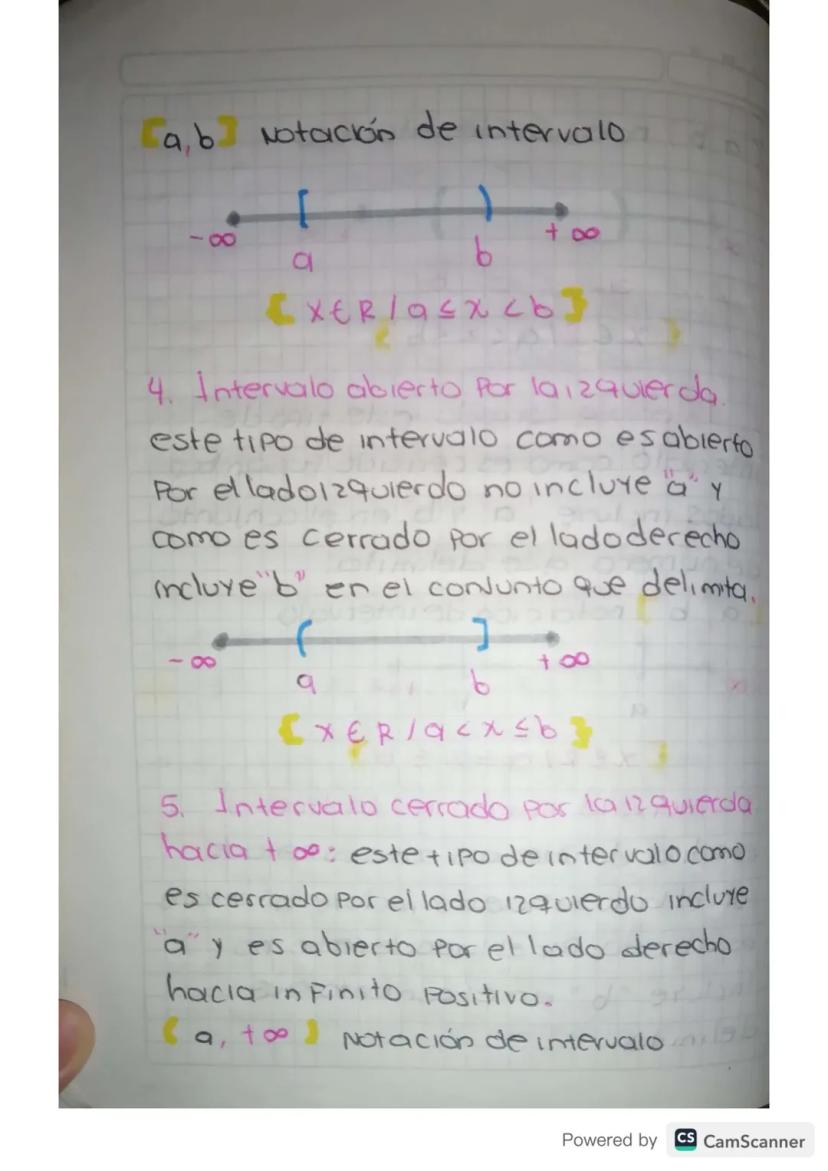 [a, b] Notación de intervalo
[ )
-∞ a b +∞
{ x ∈ R / a ≤ x < b }
4. Intervalo abierto por la izquierda.
este tipo de intervalo como es abierto
Por el lado izquierdo no incluye "a" y
como es cerrado por el lado derecho
incluye "b" en el conjunto que delimita.
( ]
-∞ a b +∞
{ x ∈ R / a < x ≤ b }
5. Intervalo cerrado por la izquierda
hacia + ∞: este tipo de intervalo como
es cerrado por el lado izquierdo incluye
"a" y es abierto por el lado derecho
hacia infinito positivo.
( a, +∞ ) Notación de intervalo
Powered by CS CamScanner